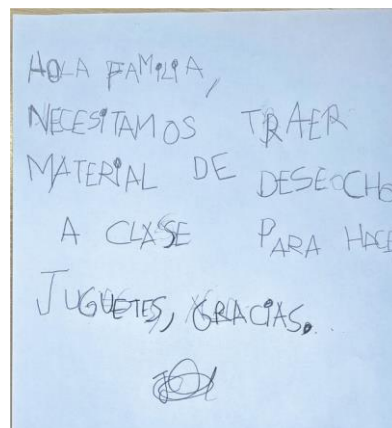 HOLA FAMILIA,
NECESITAMOS TRAER
MATERIAL DE DESEOCHO
A CLASE PARA HACE
JUGUETES, GRACIAS.